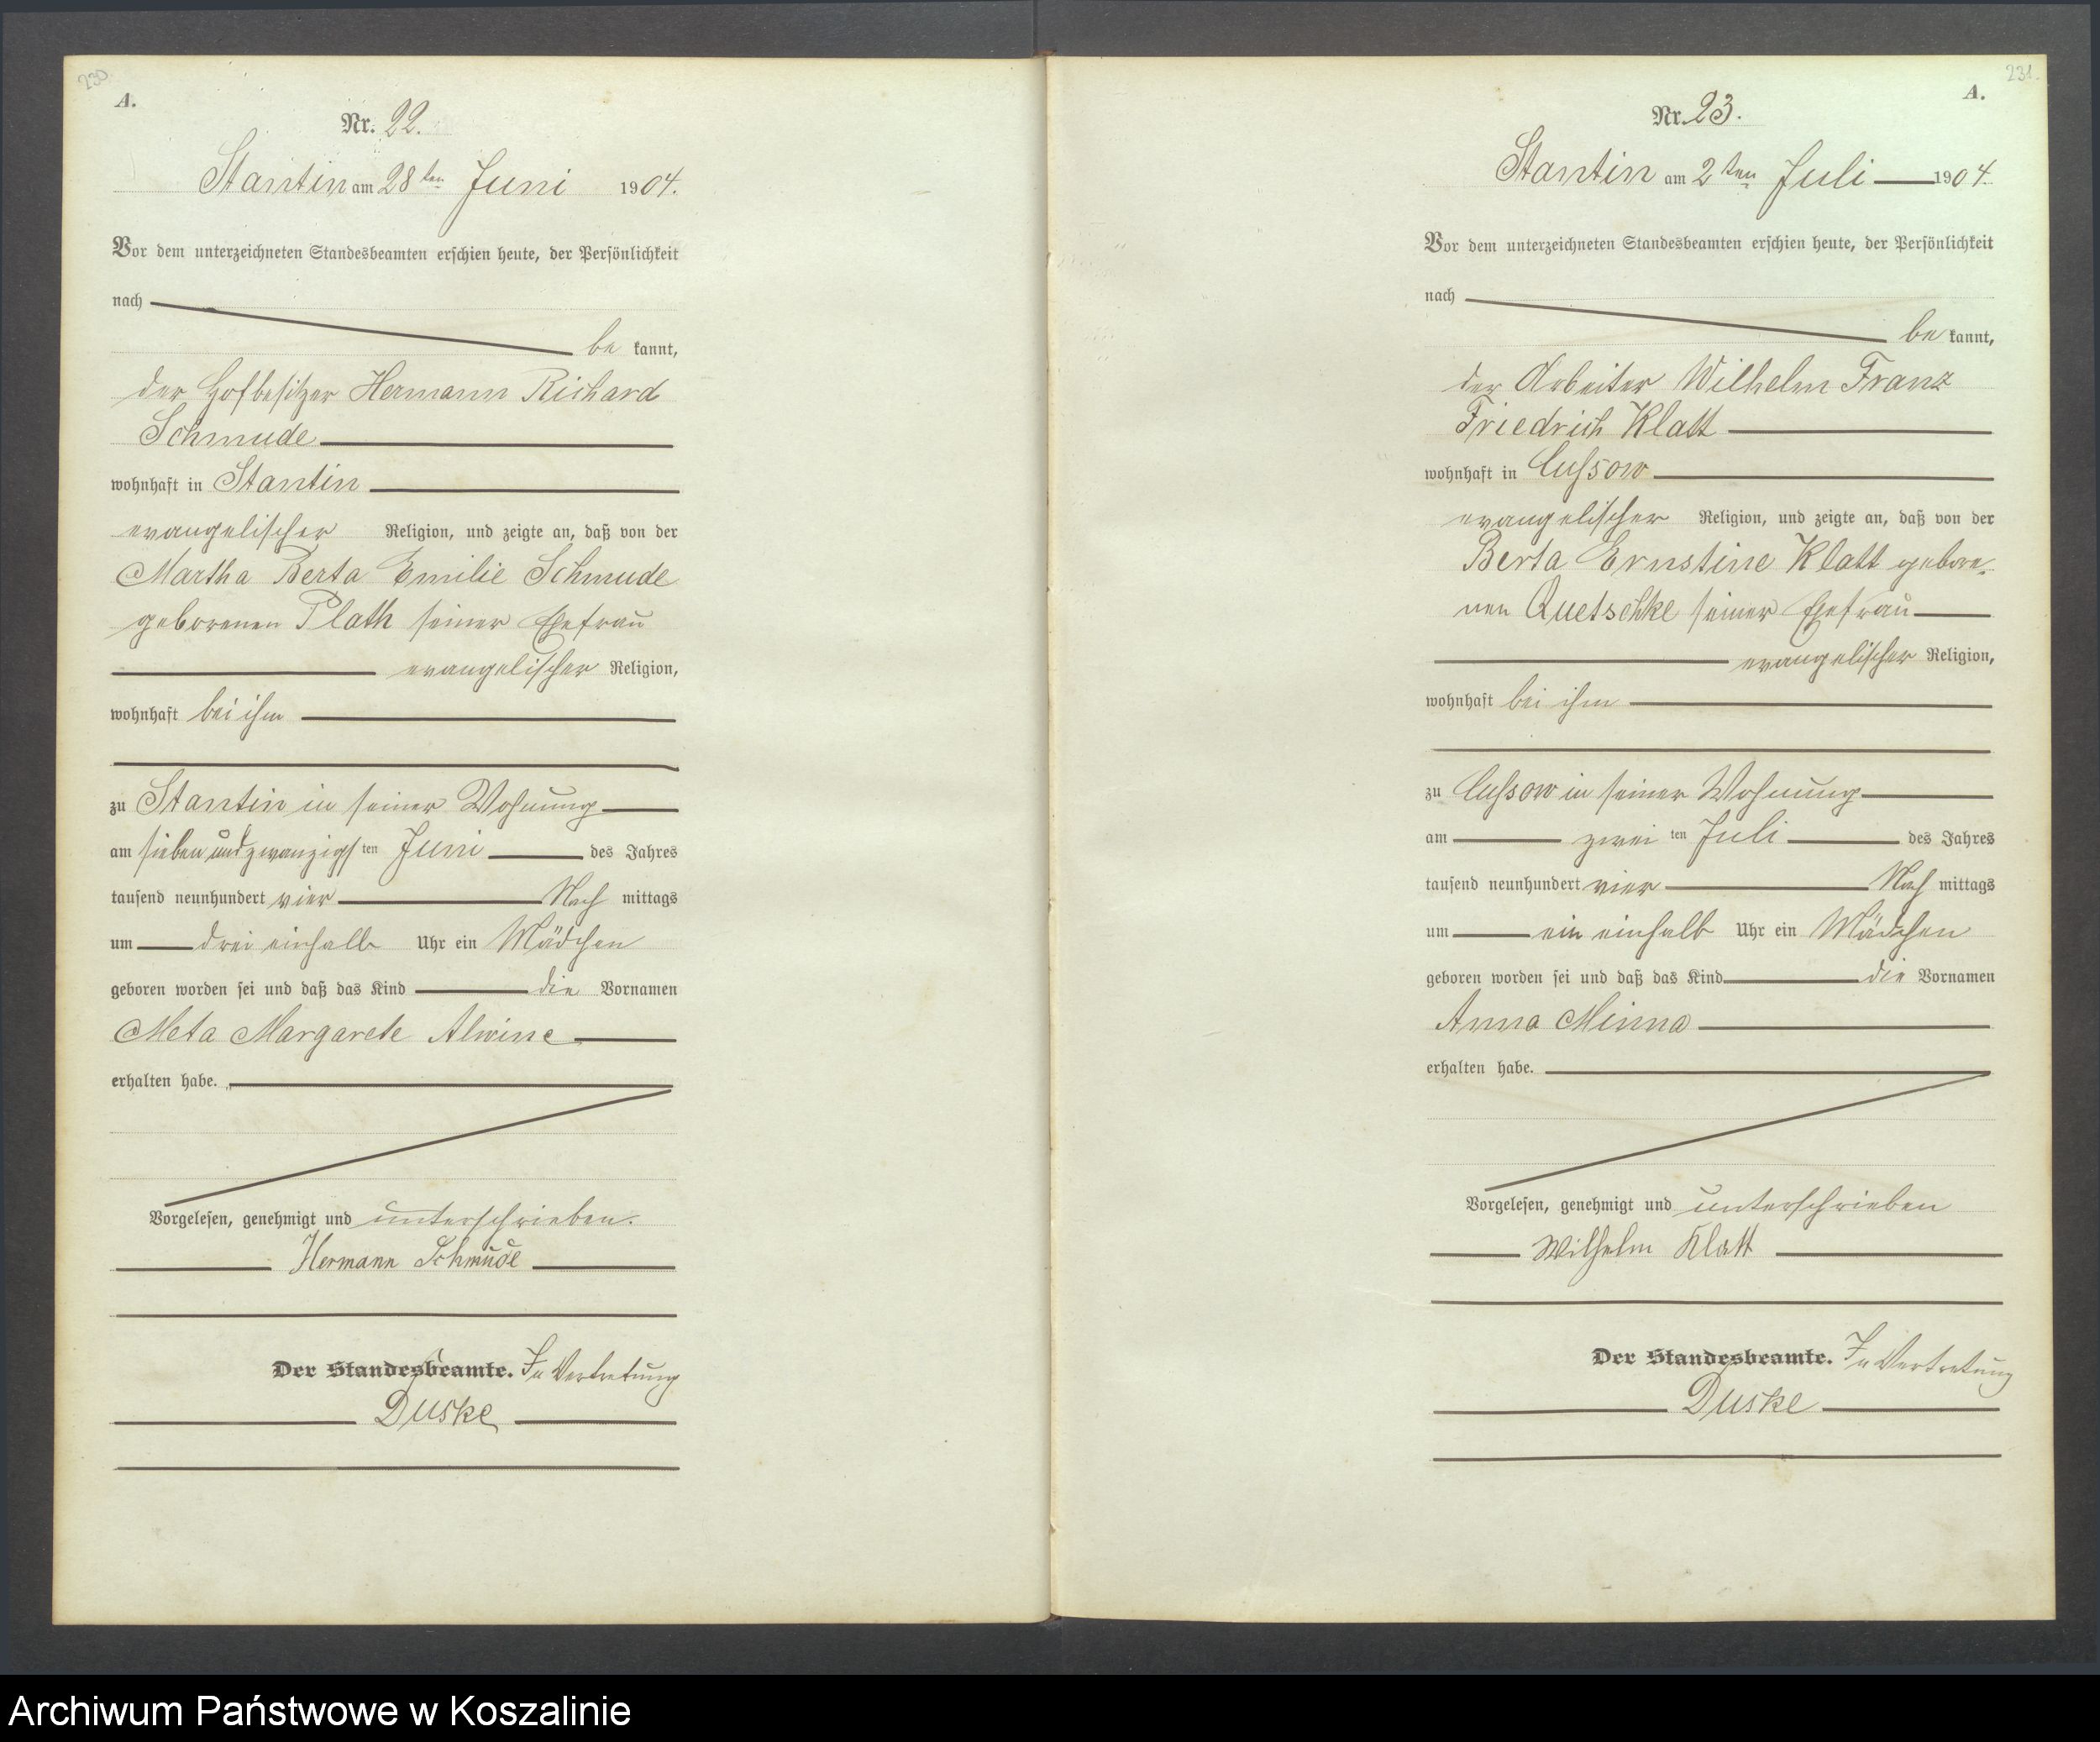 230
A.
Nr. 22.
Stantin am 28ten Juni 1904.
Vor dem unterzeichneten Standesbeamten erschien heute, der Persönlichkeit
nach
be kannt,
der Hofbesitzer Hermann Richard
Schmude
wohnhaft in Stantin
evangelischer Religion, und zeigte an, daß von der
Martha Berta Emilie Schmude
geborenen Plath seiner Ehefrau
evangelischer Religion,
wohnhaft bei ihm
zu Stantin in seiner Wohnung
am sieben und zwanzigsten Juni des Jahres
tausend neunhundert vier Nach mittags
um drei einhalb Uhr ein Mädchen
geboren worden sei und daß das Kind die Vornamen
Meta Margarete Alwine
erhalten habe.
Vorgelesen, genehmigt und unterschrieben.
Hermann Schmude
Der Standesbeamte. In Vertretung
Duske
231.
A.
Nr. 23.
Stantin am 2ten Juli 1904.
Vor dem unterzeichneten Standesbeamten erschien heute, der Persönlichkeit
nach
be kannt,
der Arbeiter Wilhelm Franz
Friedrich Klatt
wohnhaft in Cussow
evangelischer Religion, und zeigte an, daß von der
Berta Ernstine Klatt gebore-
nen Quetschke seiner Ehefrau
evangelischer Religion,
wohnhaft bei ihm
zu Cussow in seiner Wohnung
am zwei ten Juli des Jahres
tausend neunhundert vier Nach mittags
um ein einhalb Uhr ein Mädchen
geboren worden sei und daß das Kind die Vornamen
Anna Minna
erhalten habe.
Vorgelesen, genehmigt und unterschrieben
Wilhelm Klatt
Der Standesbeamte. In Vertretung
Duske
Archiwum Państwowe w Koszalinie